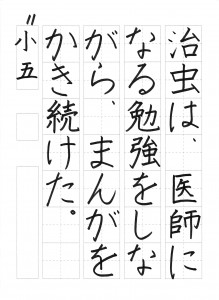 治虫は、医師に
なる勉強をしな
がら、まんがを
かき続けた。
〃小五